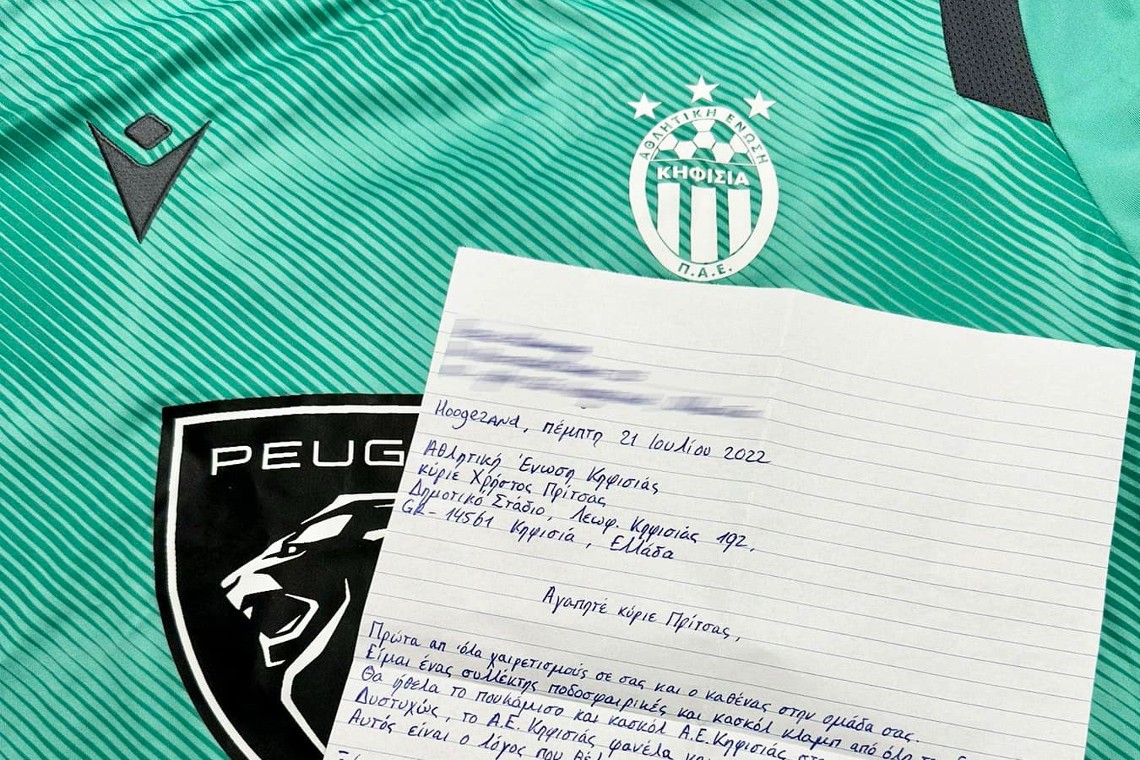 ΑΘΛΗΤΙΚΗ ΕΝΩΣΗ
ΚΗΦΙΣΙΑ
Π.Α.Ε.
PEUG
Hoogezand, πέμπτη 21 Ιουλίου 2022
Αθλητική Ένωση Κηφισιάς
κύριε Χρήστος Πρίτσας
Δημοτικό Στάδιο, Λεωφ. Κηφισιάς 192,
GR-14561 Κηφισιά, Ελλάδα
Αγαπητέ κύριε Πρίτσας,
Πρώτα απ' όλα χαιρετισμούς σε σας και ο καθένας στην ομάδα σας.
Είμαι ένας συλλέκτης ποδοσφαιρικές και κασκόλ κλαμπ από όλη
Θα ήθελα το πουκάμισο και κασκόλ Α.Ε.Κηφισιάς
Δυστυχώς, το Α.Ε.Κηφισιάς φανέλα
Αυτός είναι ο λόγος που